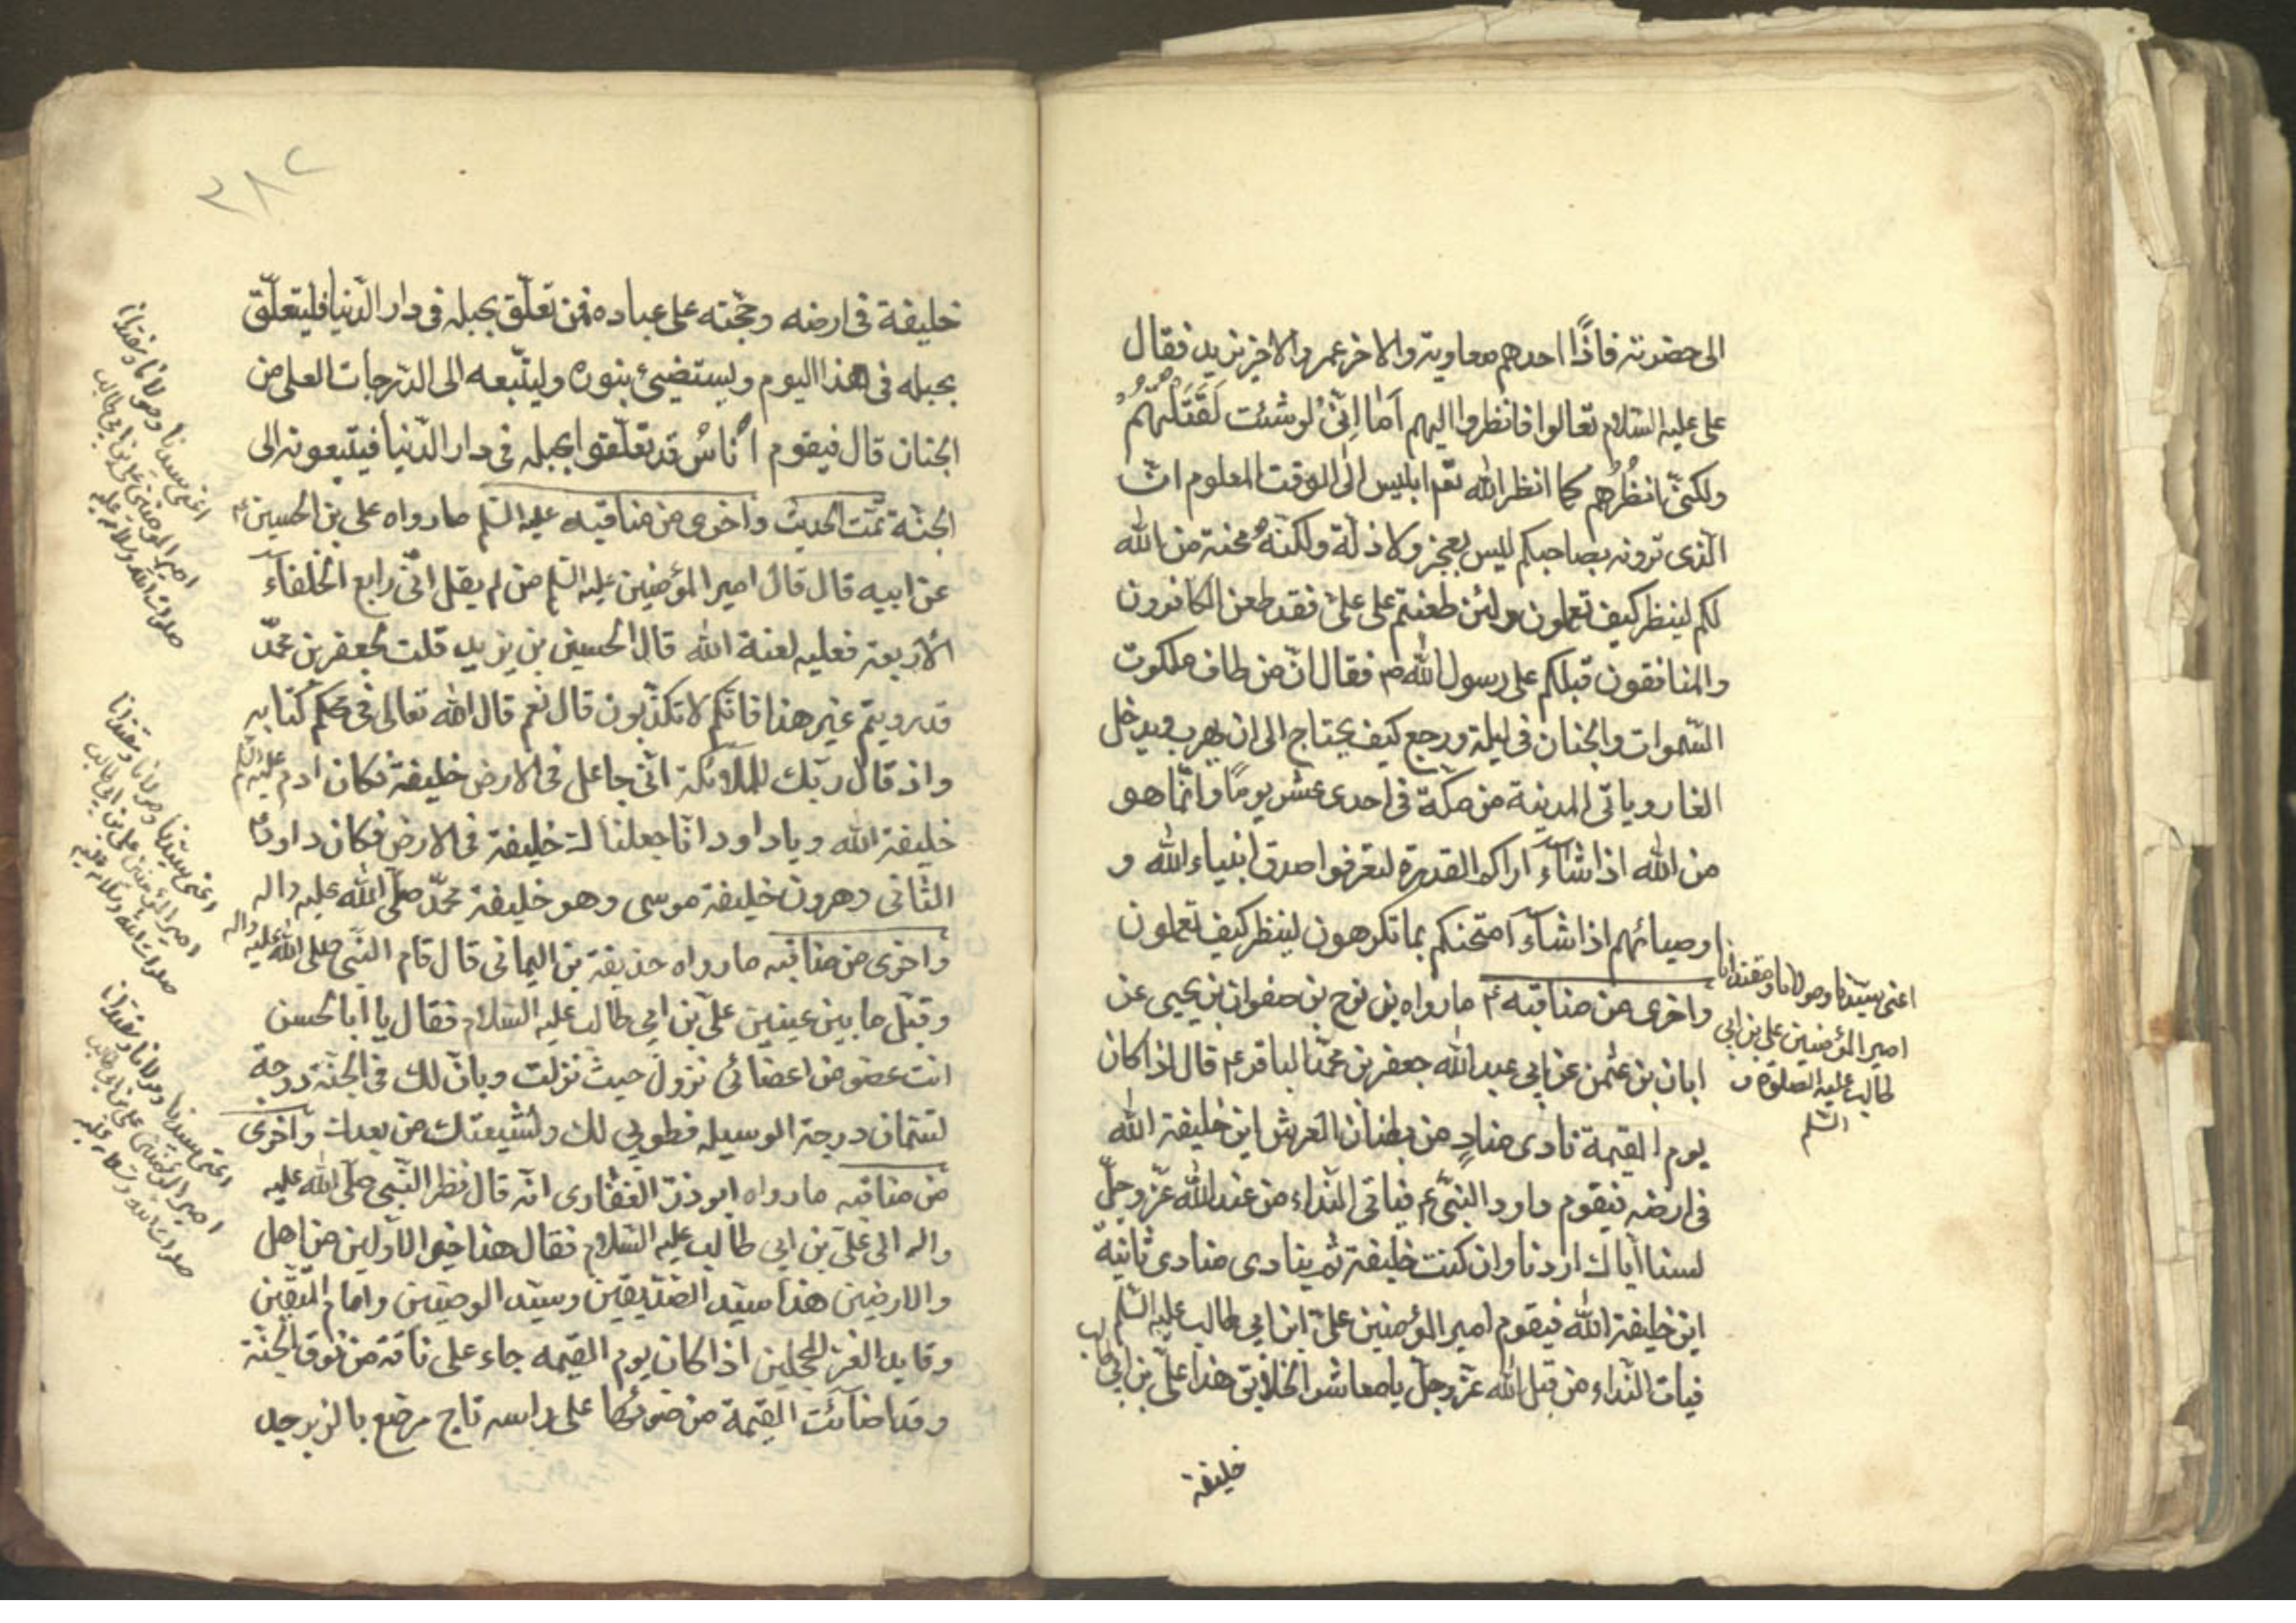 الى حضرته فاذًا احدهم معاوية والاخر عمر والاخر يزيد فقال
على عليه السلام تعالوا فانظروا اليهم اما اِنّى لو شئت لَقَتَلْتهُمْ
ولكنّى انظُرُهم كما انظر الله تعم ابليس الى الوقت المعلوم انّ
الذى ترونه بصاحبكم ليس بعجز ولا ذلة ولكنّه محنة من الله
لكم لينظر كيف تعملون ولئن طعنتم على علىّ فقد طعن الكافرون
والمنافقون قبلكم على رسول الله ص فقال انّ من طاف ملكوت
السّموات والجنان فى ليلة ورجع كيف يحتاج الى ان يهرب ويدخل
الغار وياتى المدينة من مكّة فى احدى عشر يومًا وانّما هو
من الله اذا شآء اراكم القدرة لتعرفوا صدق انبياء الله و
اوصيائهم اذا شآء امتحنكم بما تكرهون لينظر كيف تعملون
واخرى من مناقبه ع ما رواه بن نوح بن صفوان بن يحيى عن
ابان بن عثمن عن ابى عبد الله جعفر بن محمد الباقر ع قال اذا كان
يوم القيمة نادى منادٍ من بطنان العرش اين خليفة الله
فى ارضه فيقوم داود النبىّ ع فياتى النداء من عند الله عزّ وجلّ
لسنا ايّاك اردنا وان كنت خليفة ثم ينادى منادى ثانية
اين خليفة الله فيقوم امير المؤمنين علىّ ابن ابى طالب عليه السّلم
فيات النّداء من قبل الله عزّ وجلّ يا معاشر الخلايق هذا علىّ بن ابى طالب
خليفة
اعنى سيّدنا ومولانا ومقتدانا
امير المؤمنين على بن ابى
طالب عليه الصلوة و
السّلم
٣٨٢
خليفة فى ارضه وحجّته على عباده فمن تعلّق بحبله فى دار الدّنيا فليتعلّق
بحبله فى هذا اليوم وليستضيئ بنوره وليتّبعه الى الدّرجات العلى من
الجنان قال فيقوم اُناسٌ قد تعلّقوا بحبله فى دار الدّنيا فيتبعونه الى
الجنّة تمّت الحديث واخرى من مناقبه عليه السّلم ما رواه على بن الحسين ع
عن ابيه قال قال امير المؤمنين عليه السّلم من لم يقل انّى رابع الخلفآء
الاربعة فعليه لعنة الله قال الحسين بن يزيد قلت لجعفر بن محمّد
قد رويتم غير هذا فانّكم لا تكذبون قال نعم قال الله تعالى فى محكم كتابه
واذ قال ربّك للملائكة انّى جاعل فى الارض خليفة فكان ادم عليه السّلم
خليفة الله ويا داود انّا جعلناك خليفة فى الارض فكان داود
الثانى وهرون خليفة موسى وهو خليفة محمّد صلّى الله عليه واله
واخرى من مناقبه ما رواه حذيفة بن اليمانى قال قام النّبى صلى الله عليه واله
وقبّل ما بين عينين علىّ بن ابى طالب عليه السّلام فقال يا ابا الحسن
انت عضو من اعضائى نزول حيث نزلت وبان لك فى الجنّة درجة
درجة الوسيله فطوبى لك ولشيعتك من بعدك واخرى
من مناقبه ما رواه ابو ذرّ الغفّارى انّه قال نظر النّبى صلّى الله عليه
واله الى علىّ بن ابى طالب عليه السّلام فقال هذا خير الاوّلين من اهل
والارضين هذا سيّد الصّديقين وسيّد الوصيّين وامام المتّقين
وقايد الغرّ المحجلين اذا كان يوم القيمه جاء على ناقة من نوق الجنّة
وقد اضائت القيمة من ضوئها على راسه تاج مرصّع بالزبرجد
اعنى سيدنا ومولانا ومقتدانا
امير المؤمنين على بن ابى طالب
صلوات الله وسلامه عليه
اعنى سيّدنا ومولانا ومقتدانا
امير المؤمنين على بن ابى طالب
صلوات الله وسلامه عليه
اعنى سيدنا ومولانا ومقتدانا
امير المؤمنين على بن ابى طالب
صلوات الله وسلامه عليه